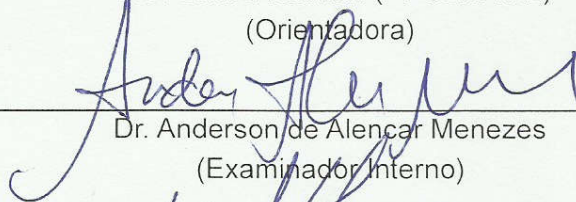 (Orientadora)
Dr. Anderson de Alencar Menezes
(Examinador Interno)